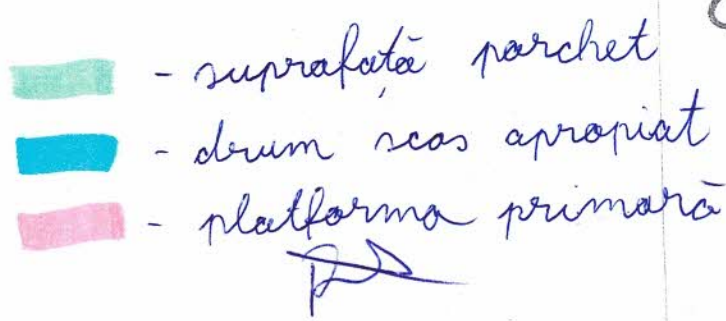 - suprafață parchet
- drum scos apropiat
- platforma primară